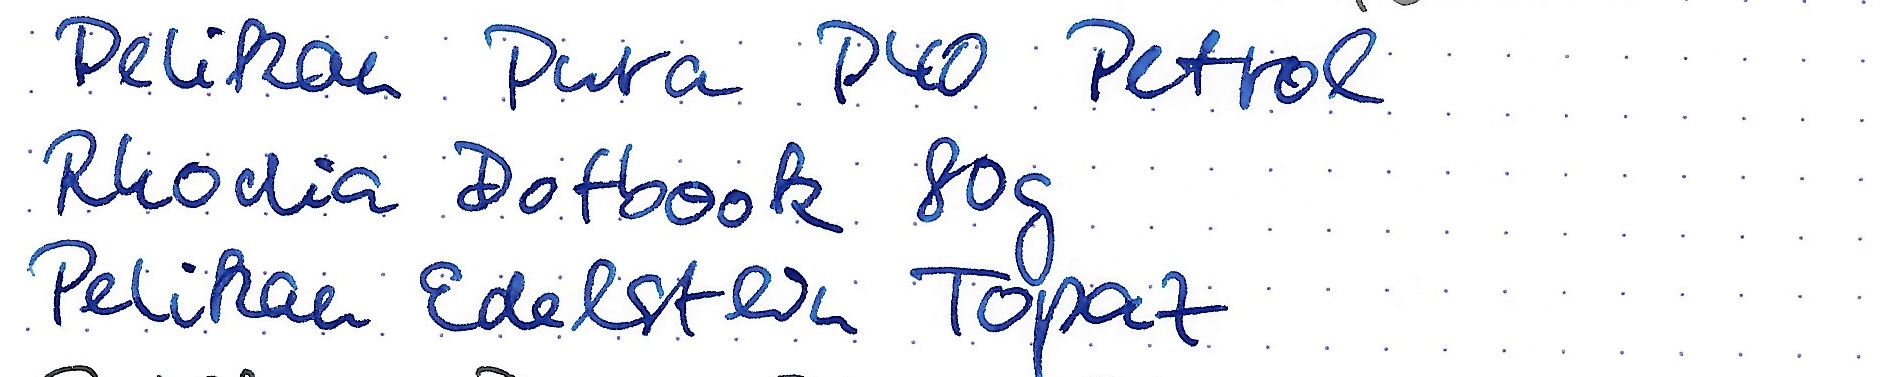 Pelikan Pura P40 Petrol
Rhodia Dotbook 80g
Pelikan Edelstein Topaz